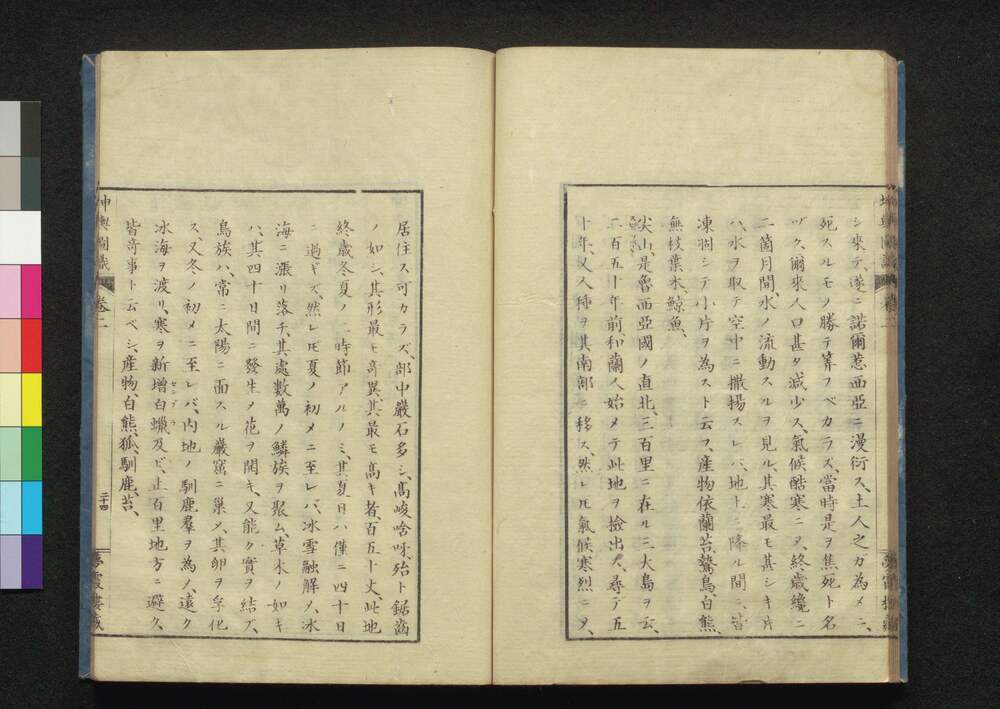 シ來テ、遂ニ諾爾惹西亞ニ漫衍ス、土人之ガ為メニ、
死スルモノ勝テ筭フベカラズ、當時是ヲ焦死ト名
ヅク、爾來人口甚タ減少ス、氣候酷寒ニメ、終歳纔ニ
二箇月間、水ノ流動スルヲ見ル、其寒最モ甚シキ片
ハ、水ヲ取テ空中ニ撒揚スレバ、地上ニ降ル間ニ、皆
凍涸シテ小片ヲ為スト云フ、産物依蘭苔、鷙鳥、白熊、
無枝葉木、鯨魚、
尖山是魯西亞國ノ直北、三百里ニ在ル三大島ヲ云、
二百五十年前、和蘭人始メテ此地ヲ撿出ス、尋デ五
十年、又人種ヲ其南部ニ移ス、然レ圧氣候寒烈ニメ、
坤輿圖識
卷二
居住ス可カラズ、部中巖石多シ、高峻啥呀、殆ト鋸齒
ノ如シ、其形最モ奇異、其最モ高キ者、百五十丈、此地
終歳冬夏ノ二時節アルノミ、其夏日ハ僅ニ四十日
ニ過ギズ、然レ圧夏ノ初メニ至レバ、冰雪融解メ、冰
海ニ漲リ落チ、其處數萬ノ鱗族ヲ聚ム、草木ノ如キ
ハ、其四十日間ニ發生メ花ヲ開キ、又能ク實ヲ結ブ、
鳥族ハ、常ニ太陽ニ面スル巖窟ニ巢メ、其卵ヲ孚化
ス、又冬ノ初メニ至レバ、内地ノ馴鹿羣ヲ為メ、遠ク
冰海ヲ渡リ、寒ヲ新增白蠟及ビ、止百里地方ニ避ク、
皆奇事ト云ベシ、産物、白熊、狐、馴鹿、苔、
坤輿圖識
卷二
二十四
夢霞樓藏